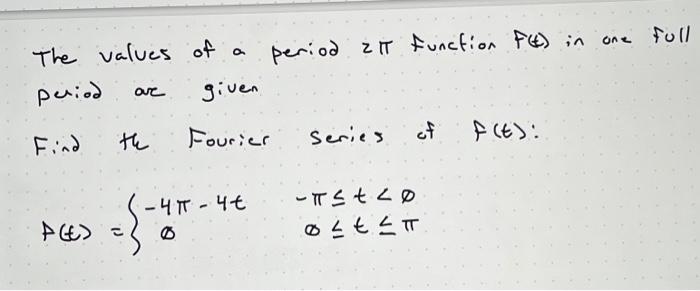 The values of a period 2π function f(t) in one full
period are given
Find the Fourier series of f(t):
f(t) = { -4π - 4t   -π ≤ t < 0
0   0 ≤ t ≤ π